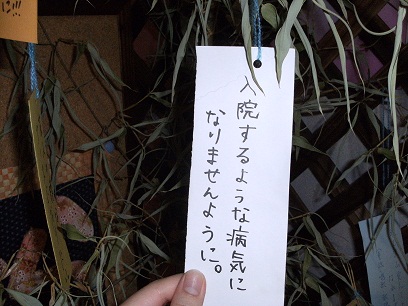 入院するような病気に
なりませんように。
に!!!